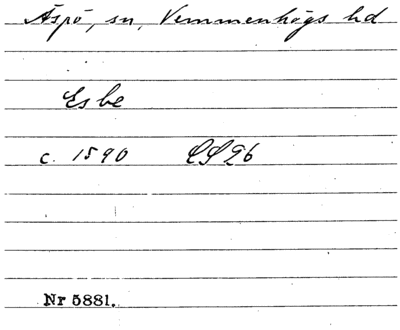 Äspö, sn, Vemmenhögs hd
Esbe
c. 1590 LSQ6
Nr 5881.